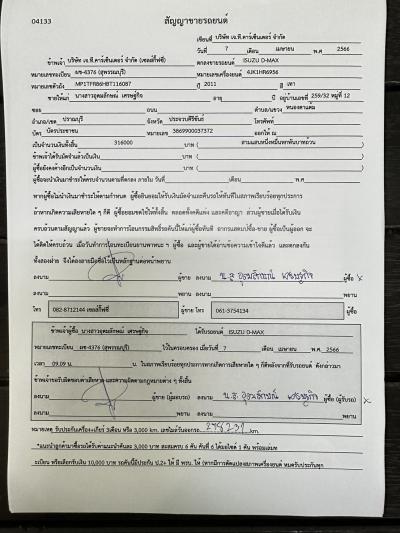 04133
สัญญาขายรถยนต์
เขียนที่ บริษัท เจ.ที.คาร์เซ็นเตอร์ จำกัด
วันที่ 7 เดือน เมษายน พ.ศ 2566
ข้าพเจ้า บริษัท เจ.ที.คาร์เซ็นเตอร์ จำกัด (เซลล์กี้ฟซี่) ตกลงขายรถยนต์ ISUZU D-MAX
หมายเลขทะเบียน ผข-4376 (สุพรรณบุรี) หมายเลขเครื่องยนต์ 4JK1HR6956
หมายเลขตัวถัง MP1TFR86HBT116087 ปี 2011 สี เทา
ขายให้แก่ นางสาวอุดมลักษณ์ เศรษฐกิจ อายุ ปี อยู่บ้านเลขที่ 259/32 หมู่ที่ 12
ซอย ถนน ตำบล/แขวง หนองตาแต้ม
อำเภอ/เขต ปราณบุรี จังหวัด ประจวบคีรีขันธ์ โทรศัพท์
บัตร บัตรประชาชน หมายเลข 3869900037372 ออกให้ ณ
เป็นจำนวนเงินทั้งสิ้น 316000 บาท ( สามแสนหนึ่งหมื่นหกพันบาทถ้วน )
ข้าพเจ้าได้รับมัดจำแล้วเป็นเงิน บาท ( )
ผู้ซื้อยังคงค้างอีกเป็นจำนวนเงิน บาท ( )
ผู้ซื้อจะนำเงินมาชำระให้ครบจำนวนตามที่ตกลง ภายใน วันที่ เดือน พ.ศ
หากผู้ซื้อไม่นำเงินมาชำระตามกำหนด ผู้ซื้อยินยอมให้ริบเงินมัดจำและคืนรถให้ทันทีในสภาพเรียบร้อยทุกประการ
ถ้าหากเกิดความเสียหายใด ๆ ก็ดี ผู้ซื้อยอมชดใช้ให้ทั้งสิ้น ตลอดทั้งคดีแพ่ง และคดีอาญา ส่วนผู้ขายเมื่อได้รับเงิน
ครบถ้วนตามสัญญาแล้ว ผู้ขายจะทำการโอนกรรมสิทธิ์รถคันนี้ให้แก่ผู้ซื้อทันที
ได้ติดให้ครบถ้วน เมื่อวันทำการโอนทะเบียนยานพาหนะ ฯ ผู้ซื้อ และผู้ขายได้อ่านข้อความเข้าใจดีแล้ว และตกลงกัน
ทั้งสองฝ่าย จึงได้ลงลายมือชื่อไว้เป็นหลักฐานต่อหน้าพยาน
ลงนาม ผู้ขาย ลงนาม น.ส อุดมลักษณ์ เศรษฐกิจ ผู้ซื้อ x
ลงนาม พยาน ลงนาม พยาน
โทร 082-8712144 เซลล์กี้ฟซี่ ผู้ขาย โทร 061-5754134 ผู้ซื้อ
ข้าพเจ้าผู้ซื้อ นางสาวอุดมลักษณ์ เศรษฐกิจ ได้รับรถยนต์ ISUZU D-MAX
หมายเลขทะเบียน ผข-4376 (สุพรรณบุรี) ไว้ในครอบครอง เมื่อวันที่ 7 เดือน เมษายน พ.ศ 2566
เวลา 09.09 น. น. ในสภาพเรียบร้อยทุกประการหากเกิดการเสียหายใด ๆ ก็ดีหลังจากที่รับรถยนต์ ดังกล่าวมา
ข้าพเจ้าขอรับผิดชอบค่าเสียหาย และความผิดตามกฎหมายต่าง ๆ ทั้งสิ้น
ลงนาม ผู้ขาย (ผู้มอบรถ) ลงนาม น.ส. อุดมลักษณ์ เศรษฐกิจ ผู้ซื้อ (ผู้รับรถ) x
ลงนาม พยาน ลงนาม พยาน
หมายเหตุ รับประกันเครื่อง+เกียร์ 3เดือน หรือ 3,000 km. เลขไมล์วันออกรถ 278237 km.
*แนะนำลูกค้ามาซื้อรถได้รับค่าแนะนำคันละ 3,000 บาท สะสมครบ 6 คัน คันที่ 6 ได้มอไซค์ 1 คัน พร้อมเล่มท
ะเบียน หรือเลือกรับเงิน 10,000 บาท รถคันนี้มีประกัน ป.2+ ให้ มี พรบ. ให้ (หากมีการดัดแปลงสภาพเครื่องยนต์ หมดรับประกันทุก